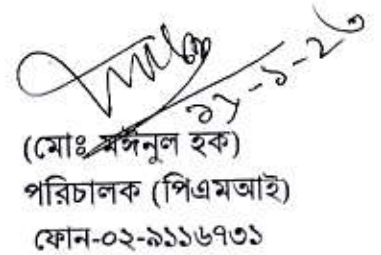 (মোঃ মঈনুল হক)
পরিচালক (পিএমআই)
ফোন-০২-৯১১৬৭৩১